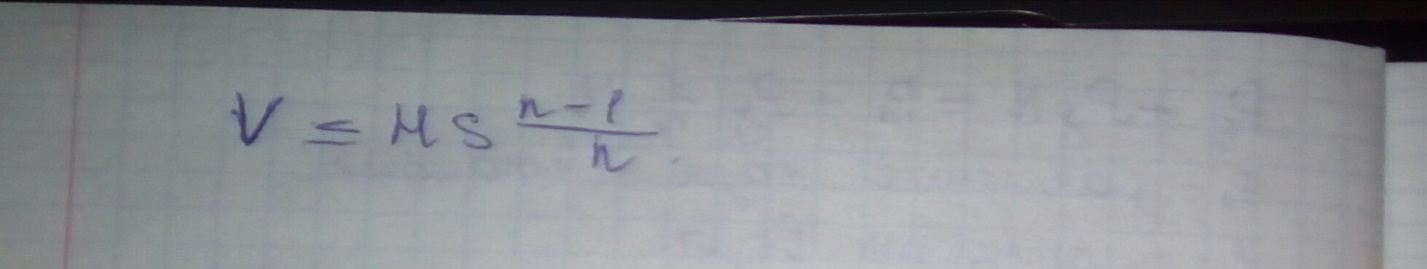 V ≤ MS \frac{n-1}{n}